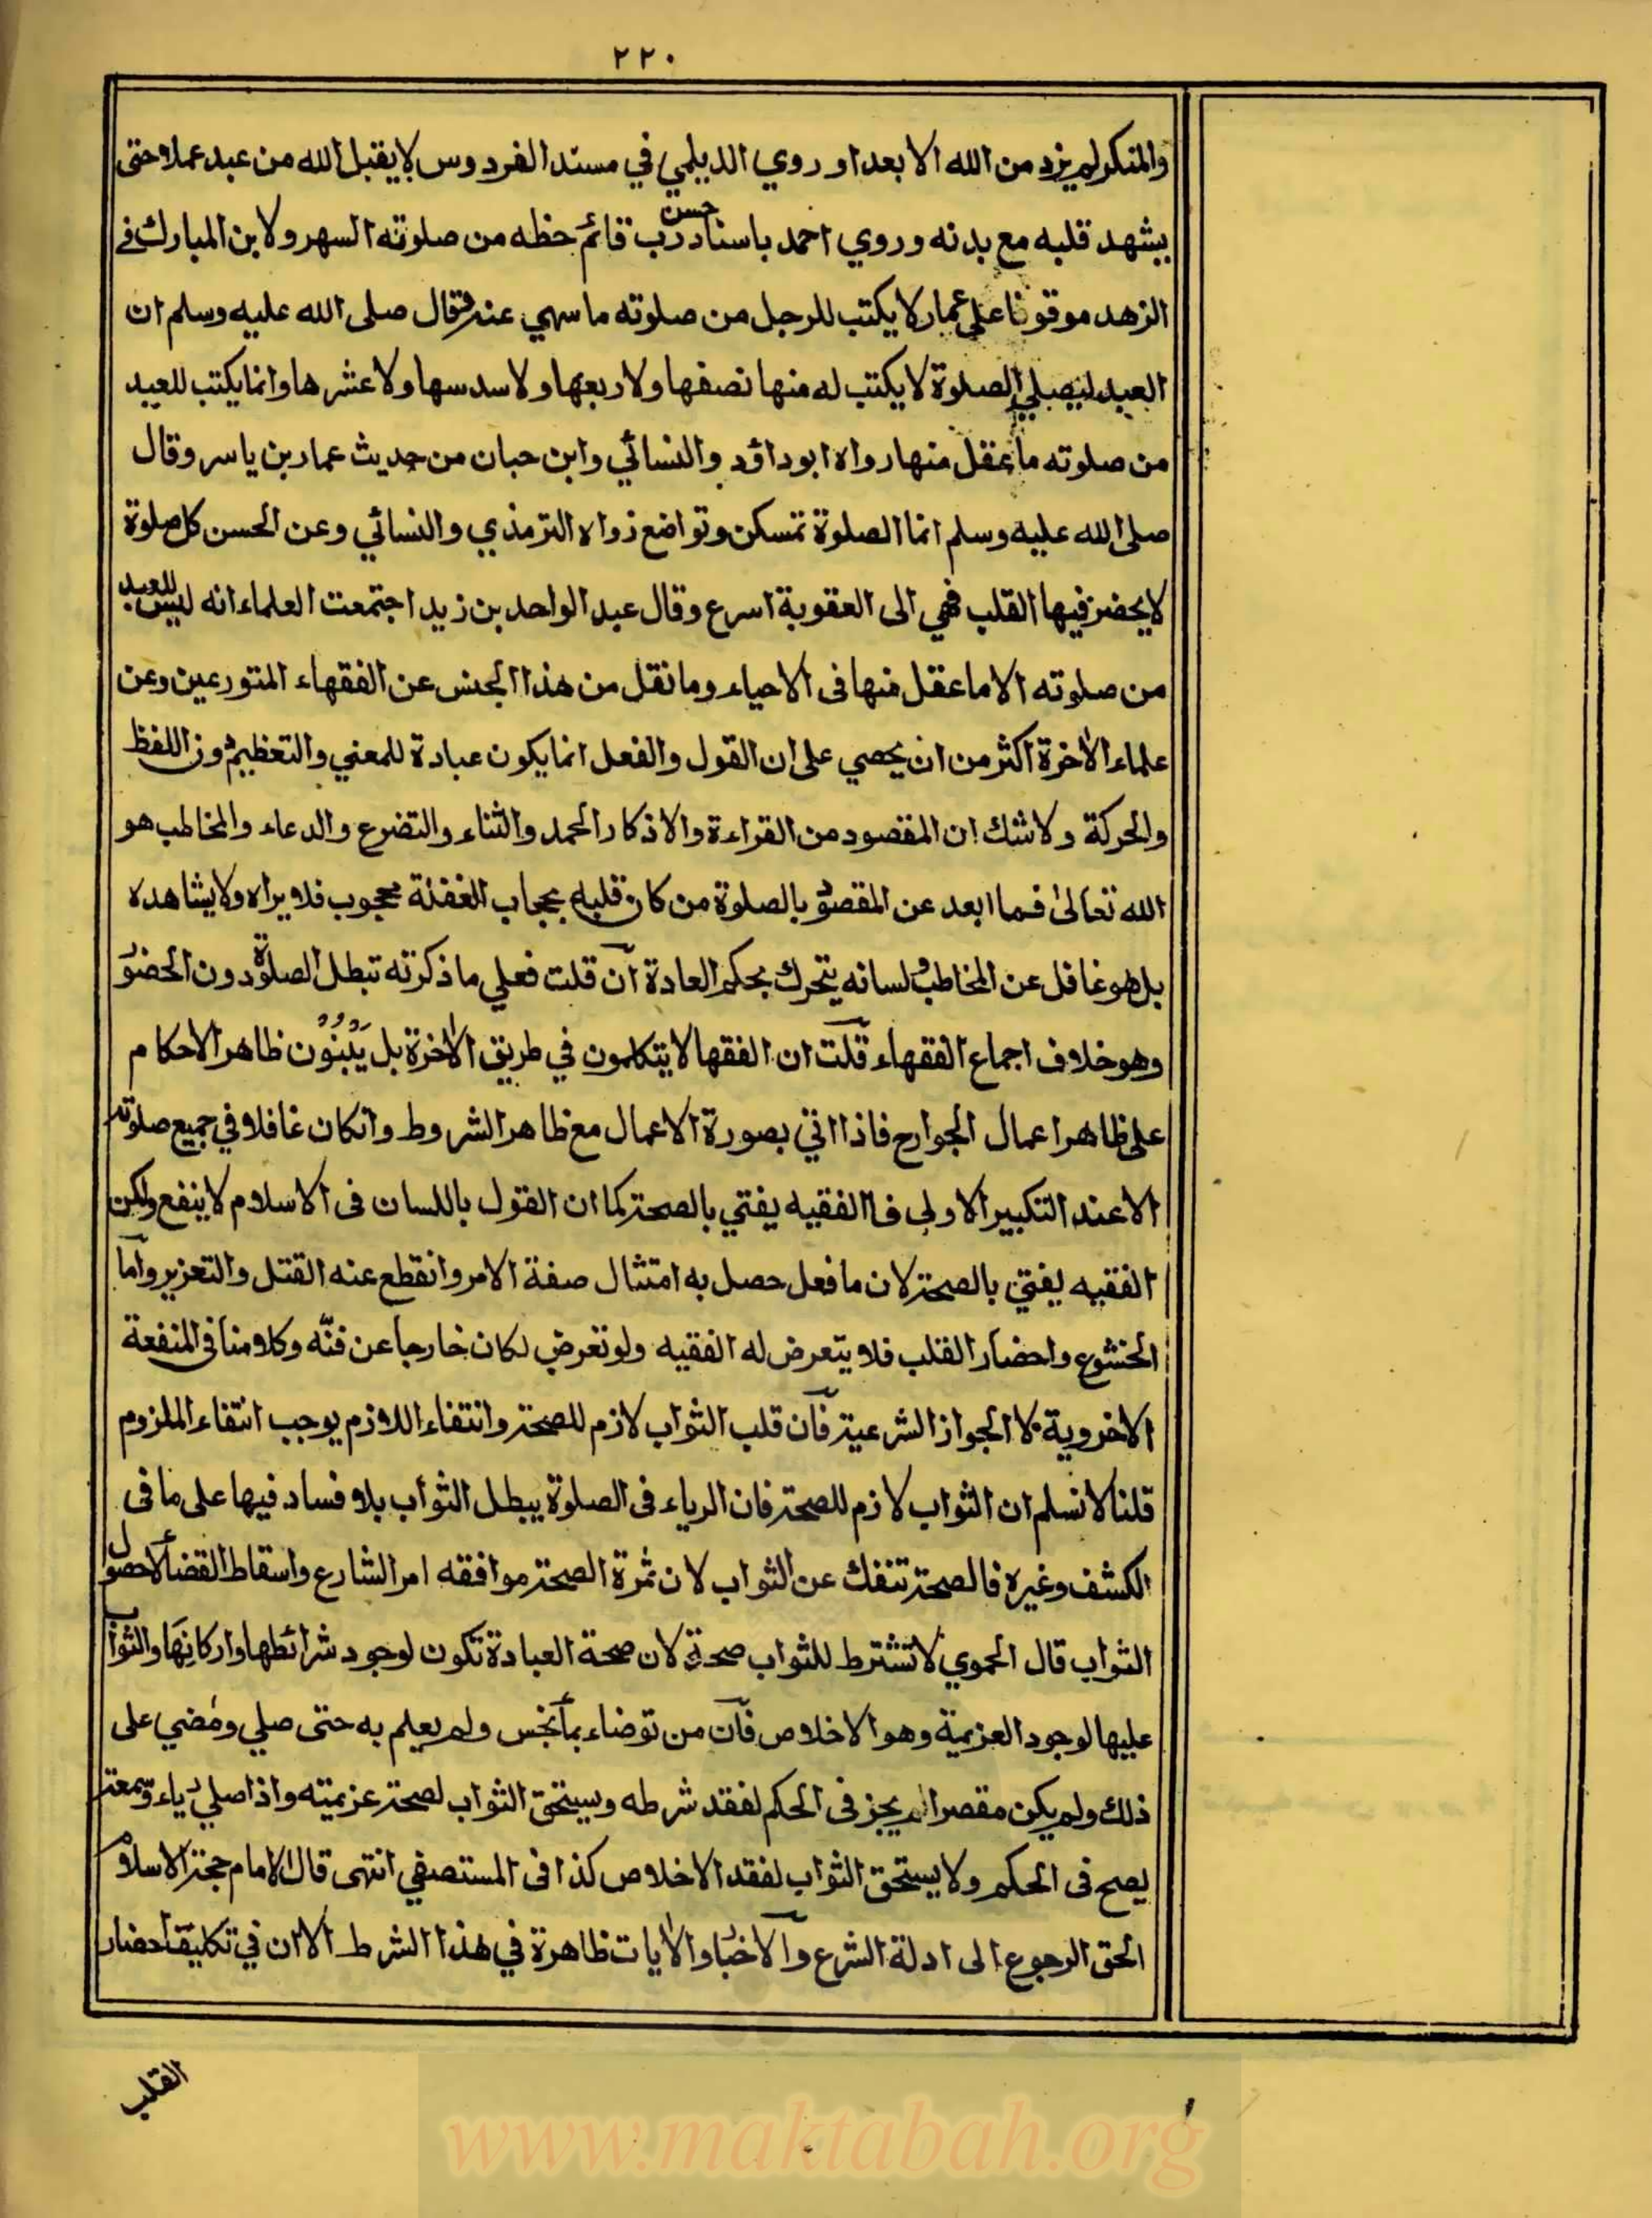 ٢٢٠
والمنكر لم يزد من الله الا بعدا و روي الديلمي في مسند الفردوس لا يقبل الله من عبد عملا حتى
يشهد قلبه مع بدنه و روي احمد باسناد حسن رب قائم حظه من صلوته السهر ولابن المبارك في
الزهد موقوفا على عمار لا يكتب للرجل من صلوته ما سهي عنه وقال صلى الله عليه وسلم ان
العبد ليصلي الصلوة لا يكتب له منها نصفها ولا ربعها ولا سدسها ولا عشرها وانما يكتب للعبد
من صلوته ما عقل منها رواه ابو داؤد والنسائي وابن حبان من حديث عمار بن ياسر وقال
صلى الله عليه وسلم انما الصلوة تمسكن وتواضع رواه الترمذي والنسائي وعن الحسن كل صلوة
لا يحضر فيها القلب فهي الى العقوبة اسرع وقال عبد الواحد بن زيد اجتمعت العلماء انه ليس للعبد
من صلوته الا ما عقل منها فى الاحياء وما نقل من هذا الجنس عن الفقهاء المتورعين وعن
علماء الاخرة اكثر من ان يحصي على ان القول والفعل انما يكون عبادة للمعني والتعظيم دون اللفظ
والحركة ولا شك ان المقصود من القراءة والاذكار الحمد والثناء والتضرع والدعاء والمخاطب هو
الله تعالى فما ابعد عن المقصود بالصلوة من كان قلبه بحجاب الغفلة محجوب فلا يراه ولا يشاهده
بل هو غافل عن المخاطب ولسانه يتحرك بحكم العادة آن قلت فعلي ما ذكرته تبطل الصلوة دون الحضور
وهو خلاف اجماع الفقهاء قلت ان الفقها لا يتكلمون في طريق الاخرة بل يَبْنُوْن ظاهر الاحكام
على ظاهر اعمال الجوارح فاذا اتي بصورة الاعمال مع ظاهر الشروط وانكان غافلا في جميع صلوته
الا عند التكبير الاولى فا الفقيه يفتي بالصحة كما ان القول باللسان فى الاسلام لا ينفع ولكن
الفقيه يفتي بالصحة لان ما فعل حصل به امتثال صفة الامر وانقطع عنه القتل والتعزير وآما
الخشوع واحضار القلب فلا يتعرض له الفقيه ولو تعرض لكان خارجا عن فنّه وكلامنا فى المنفعة
الاخروية لا الجواز الشرعية فآن قلب الثواب لازم للصحة وانتفاء اللازم يوجب انتفاء الملزوم
قلنا لا نسلم ان الثواب لازم للصحة فان الرياء فى الصلوة يبطل الثواب بلا فساد فيها على ما فى
الكشف وغيره فالصحة تنفك عن الثواب لان ثمرة الصحة موافقه امر الشارع واسقاط القضاء لا حصول
الثواب قال الحموي لا تشترط للثواب صحة لان صحة العبادة تكون لوجود شرائطها واركانها والثواب
عليها لوجود العزيمة وهو الاخلاص فآن من توضاء بماء نجس ولم يعلم به حتى صلي ومضي على
ذلك ولم يكن مقصرا لم يجز فى الحكم لفقد شرطه ويستحق الثواب لصحة عزيمته واذا صلي رياء وسمعة
يصح فى الحكم ولا يستحق الثواب لفقد الاخلاص كذا فى المستصفي انتهى قال الامام حجة الاسلام
الحق الرجوع الى ادلة الشرع وآلاخبار والايات ظاهرة في هذا الشرط الا ان في تكليف احضار
القلب
www.maktabah.org